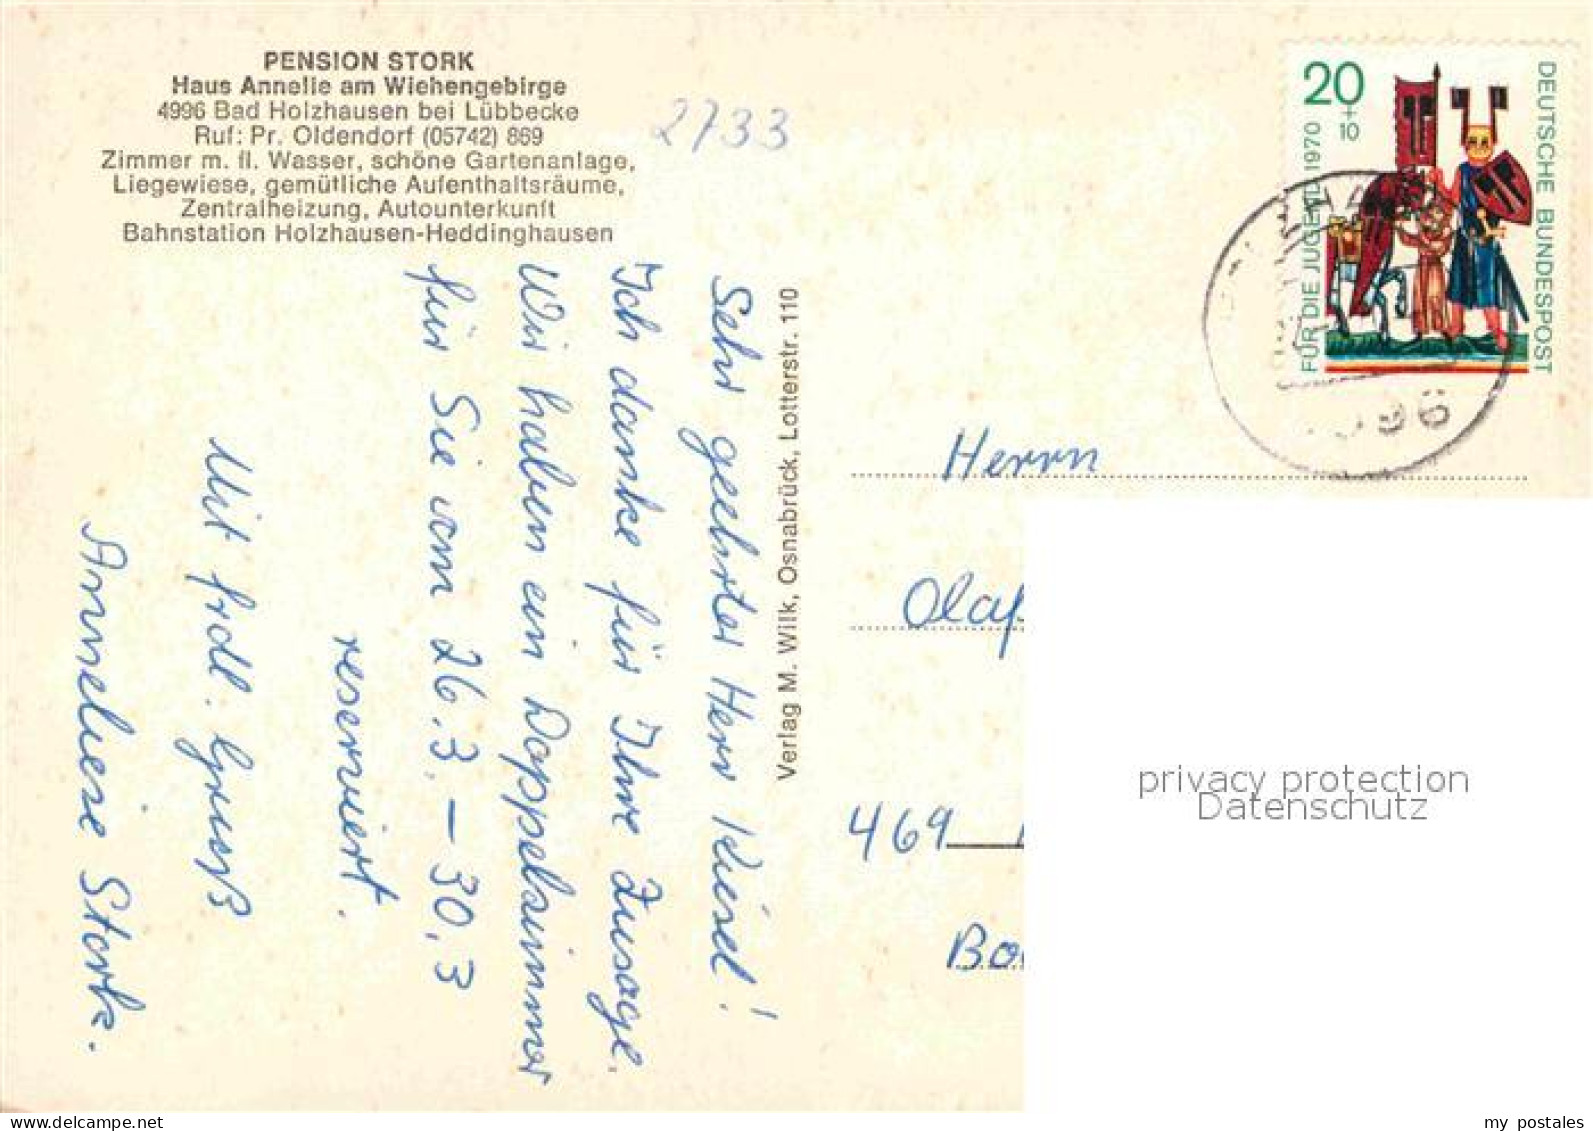 PENSION STORK
Haus Annelie am Wiehengebirge
4996 Bad Holzhausen bei Lübbecke
Ruf: Pr. Oldendorf (05742) 869
Zimmer m. fl. Wasser, schöne Gartenanlage,
Liegewiese, gemütliche Aufenthaltsräume,
Zentralheizung, Autounterkunft
Bahnstation Holzhausen-Heddinghausen
2733
Sehr geehrter Herr Kiesel!
Ich danke für Ihre Zusage.
Wir haben ein Doppelzimmer
für Sie vom 26.3. – 30.3
reserviert.
Mit frdl. Gruß
Anneliese Stork.
Verlag M. Wilk, Osnabrück, Lotterstr. 110
20 + 10
FÜR DIE JUGEND 1970
DEUTSCHE BUNDESPOST
Herrn
Olaf
469
privacy protection
Datenschutz
my postales